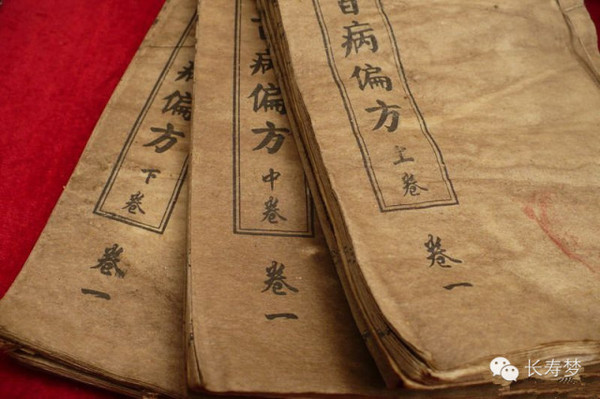 百病偏方
上卷
卷一
百病偏方
中卷
卷一
病偏方
下卷
卷一
长寿梦